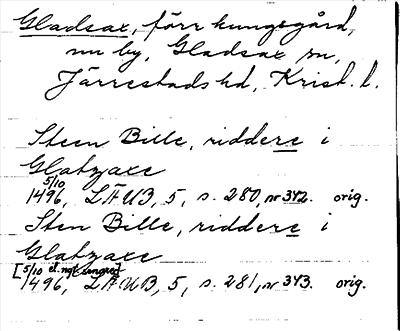 Gladsax, förr kungsgård,
nu by, Gladsax sn,
Järrestads hd, Krist. l.
Steen Bille, riddere i
Glatzaxe
5/10
1496, LÄUB, 5, s. 280, nr 342. orig.
Sten Bille, riddere i
Glatzaxe
[5/10 el. ngt senare]
1496, LÄUB, 5, s. 281, nr 343. orig.